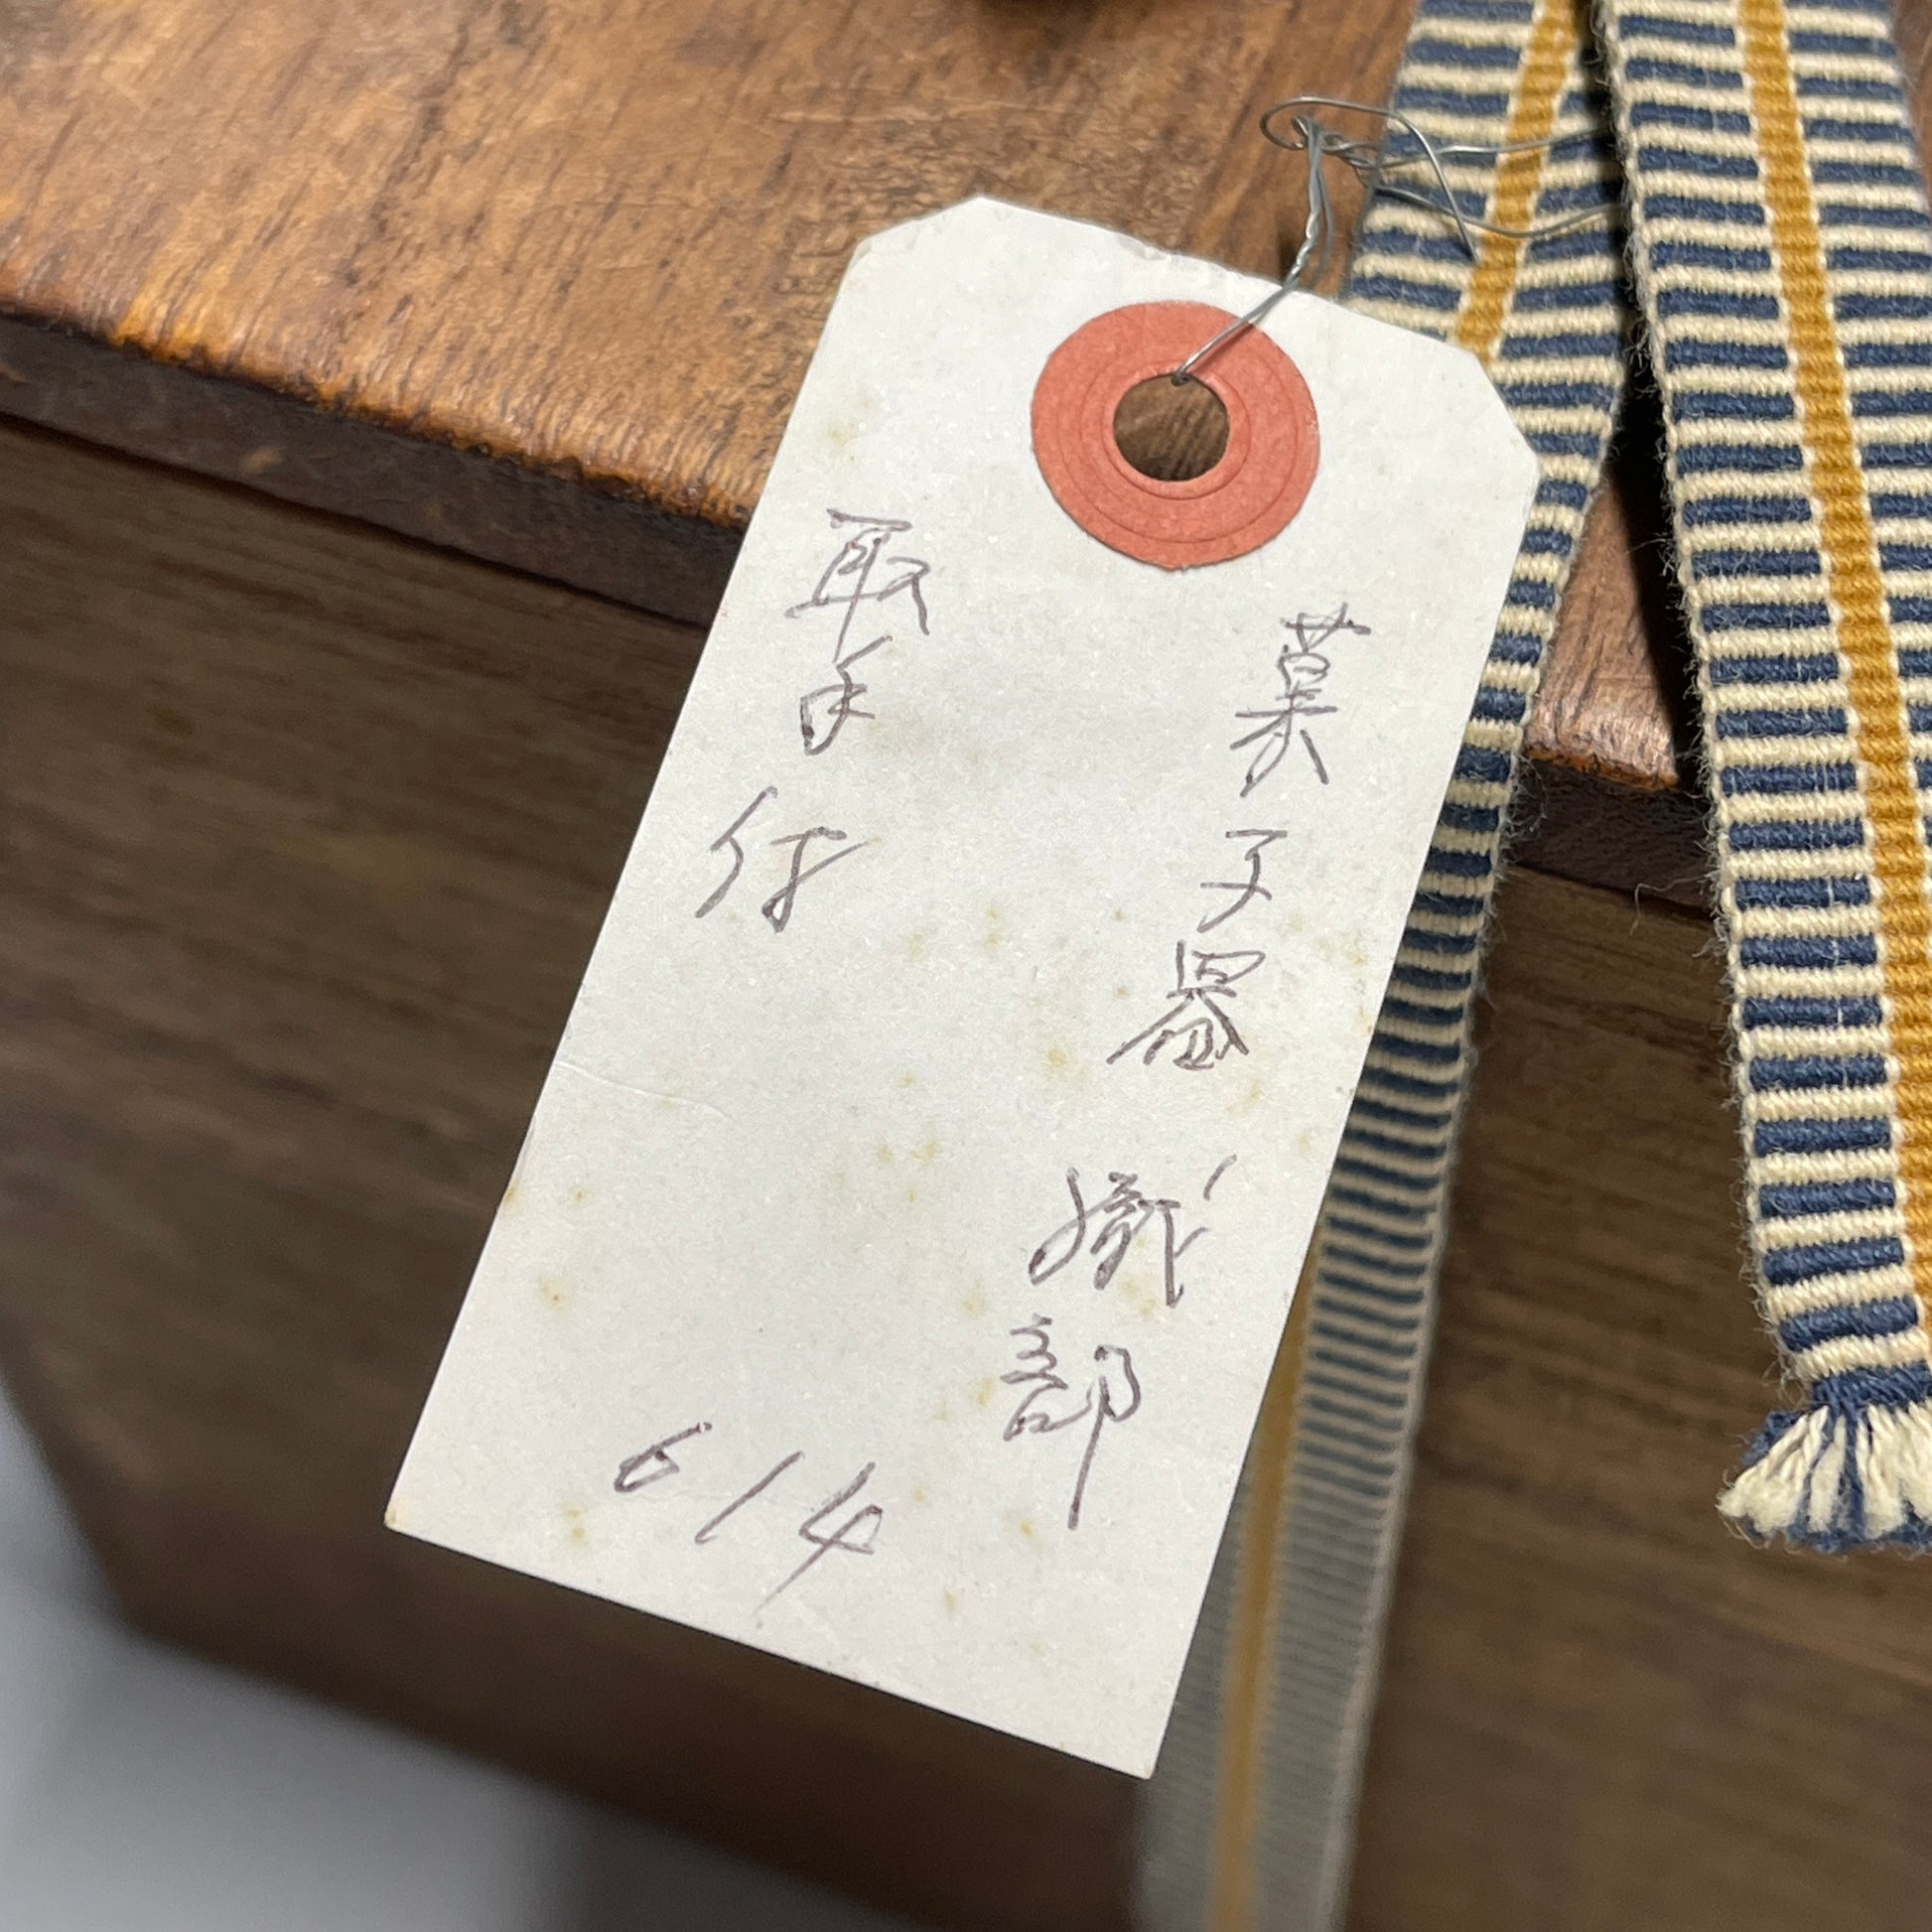 菓子器 織部
取手付
614